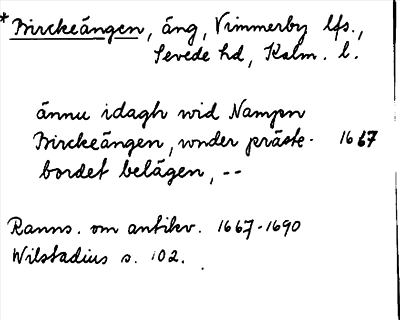 *Birckeängen, äng, Vimmerby lfs.,
Sevede hd, Kalm. l.
ännu idagh wid Nampn
Birckeängen, vnder präste- 1667
bordet belägen, --
Ranns. om antikv. 1667-1690
Wilstadius s. 102.